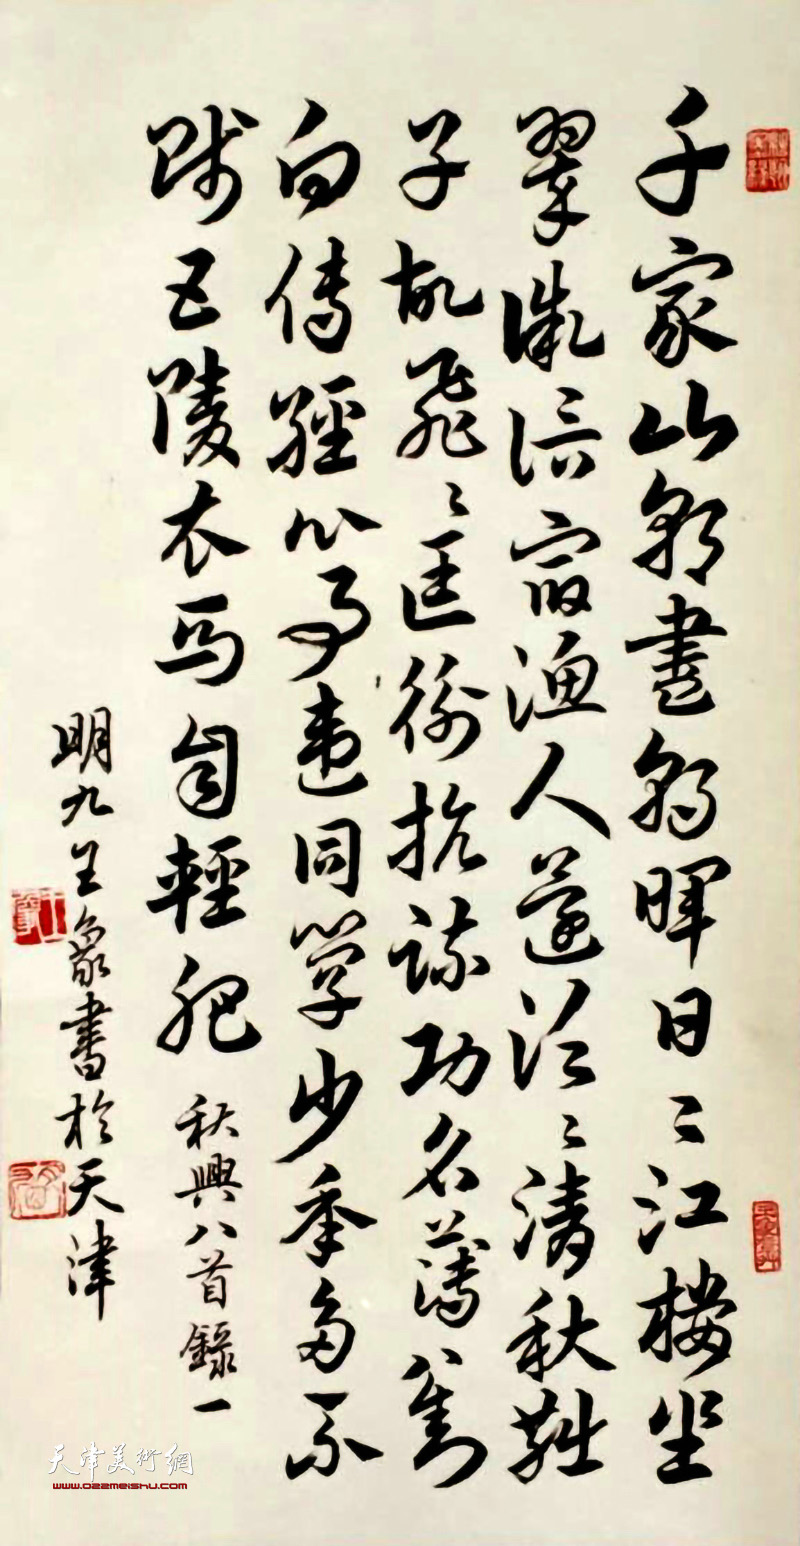 千家山郭朝暉日〻江樓坐
翠微信宿漁人還泛〻清秋燕
子故飛〻匡衡抗疏功名薄劉
向傳經心事違同學少年多不
賤五陵衣馬自輕肥
秋興八首錄一
明九王書於天津
天津美術網
www.022meishu.com